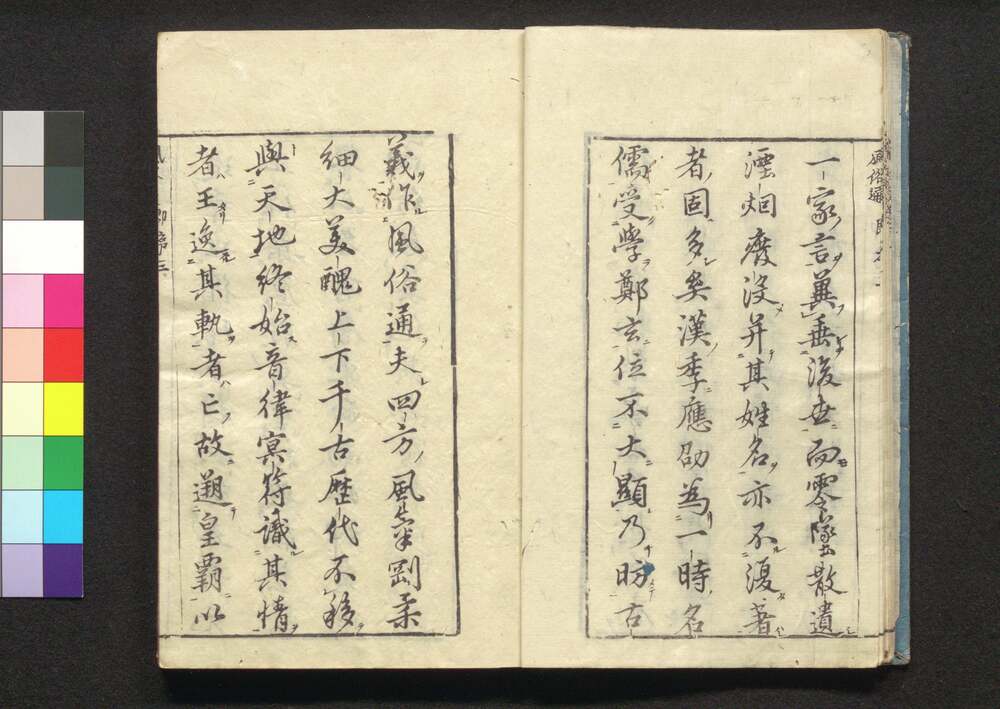 一家言冀垂後世而零墜散遺
湮烟廢没并其姓名亦不復著
者固多矣漢季應劭為一時名
儒受學鄭玄位不大顯乃昉古
義作風俗通夫四方風氣剛柔
細大美醜上下千古歷代不移
與天地終始音律冥符識其情
者王逸其軌者亡故遡皇霸以